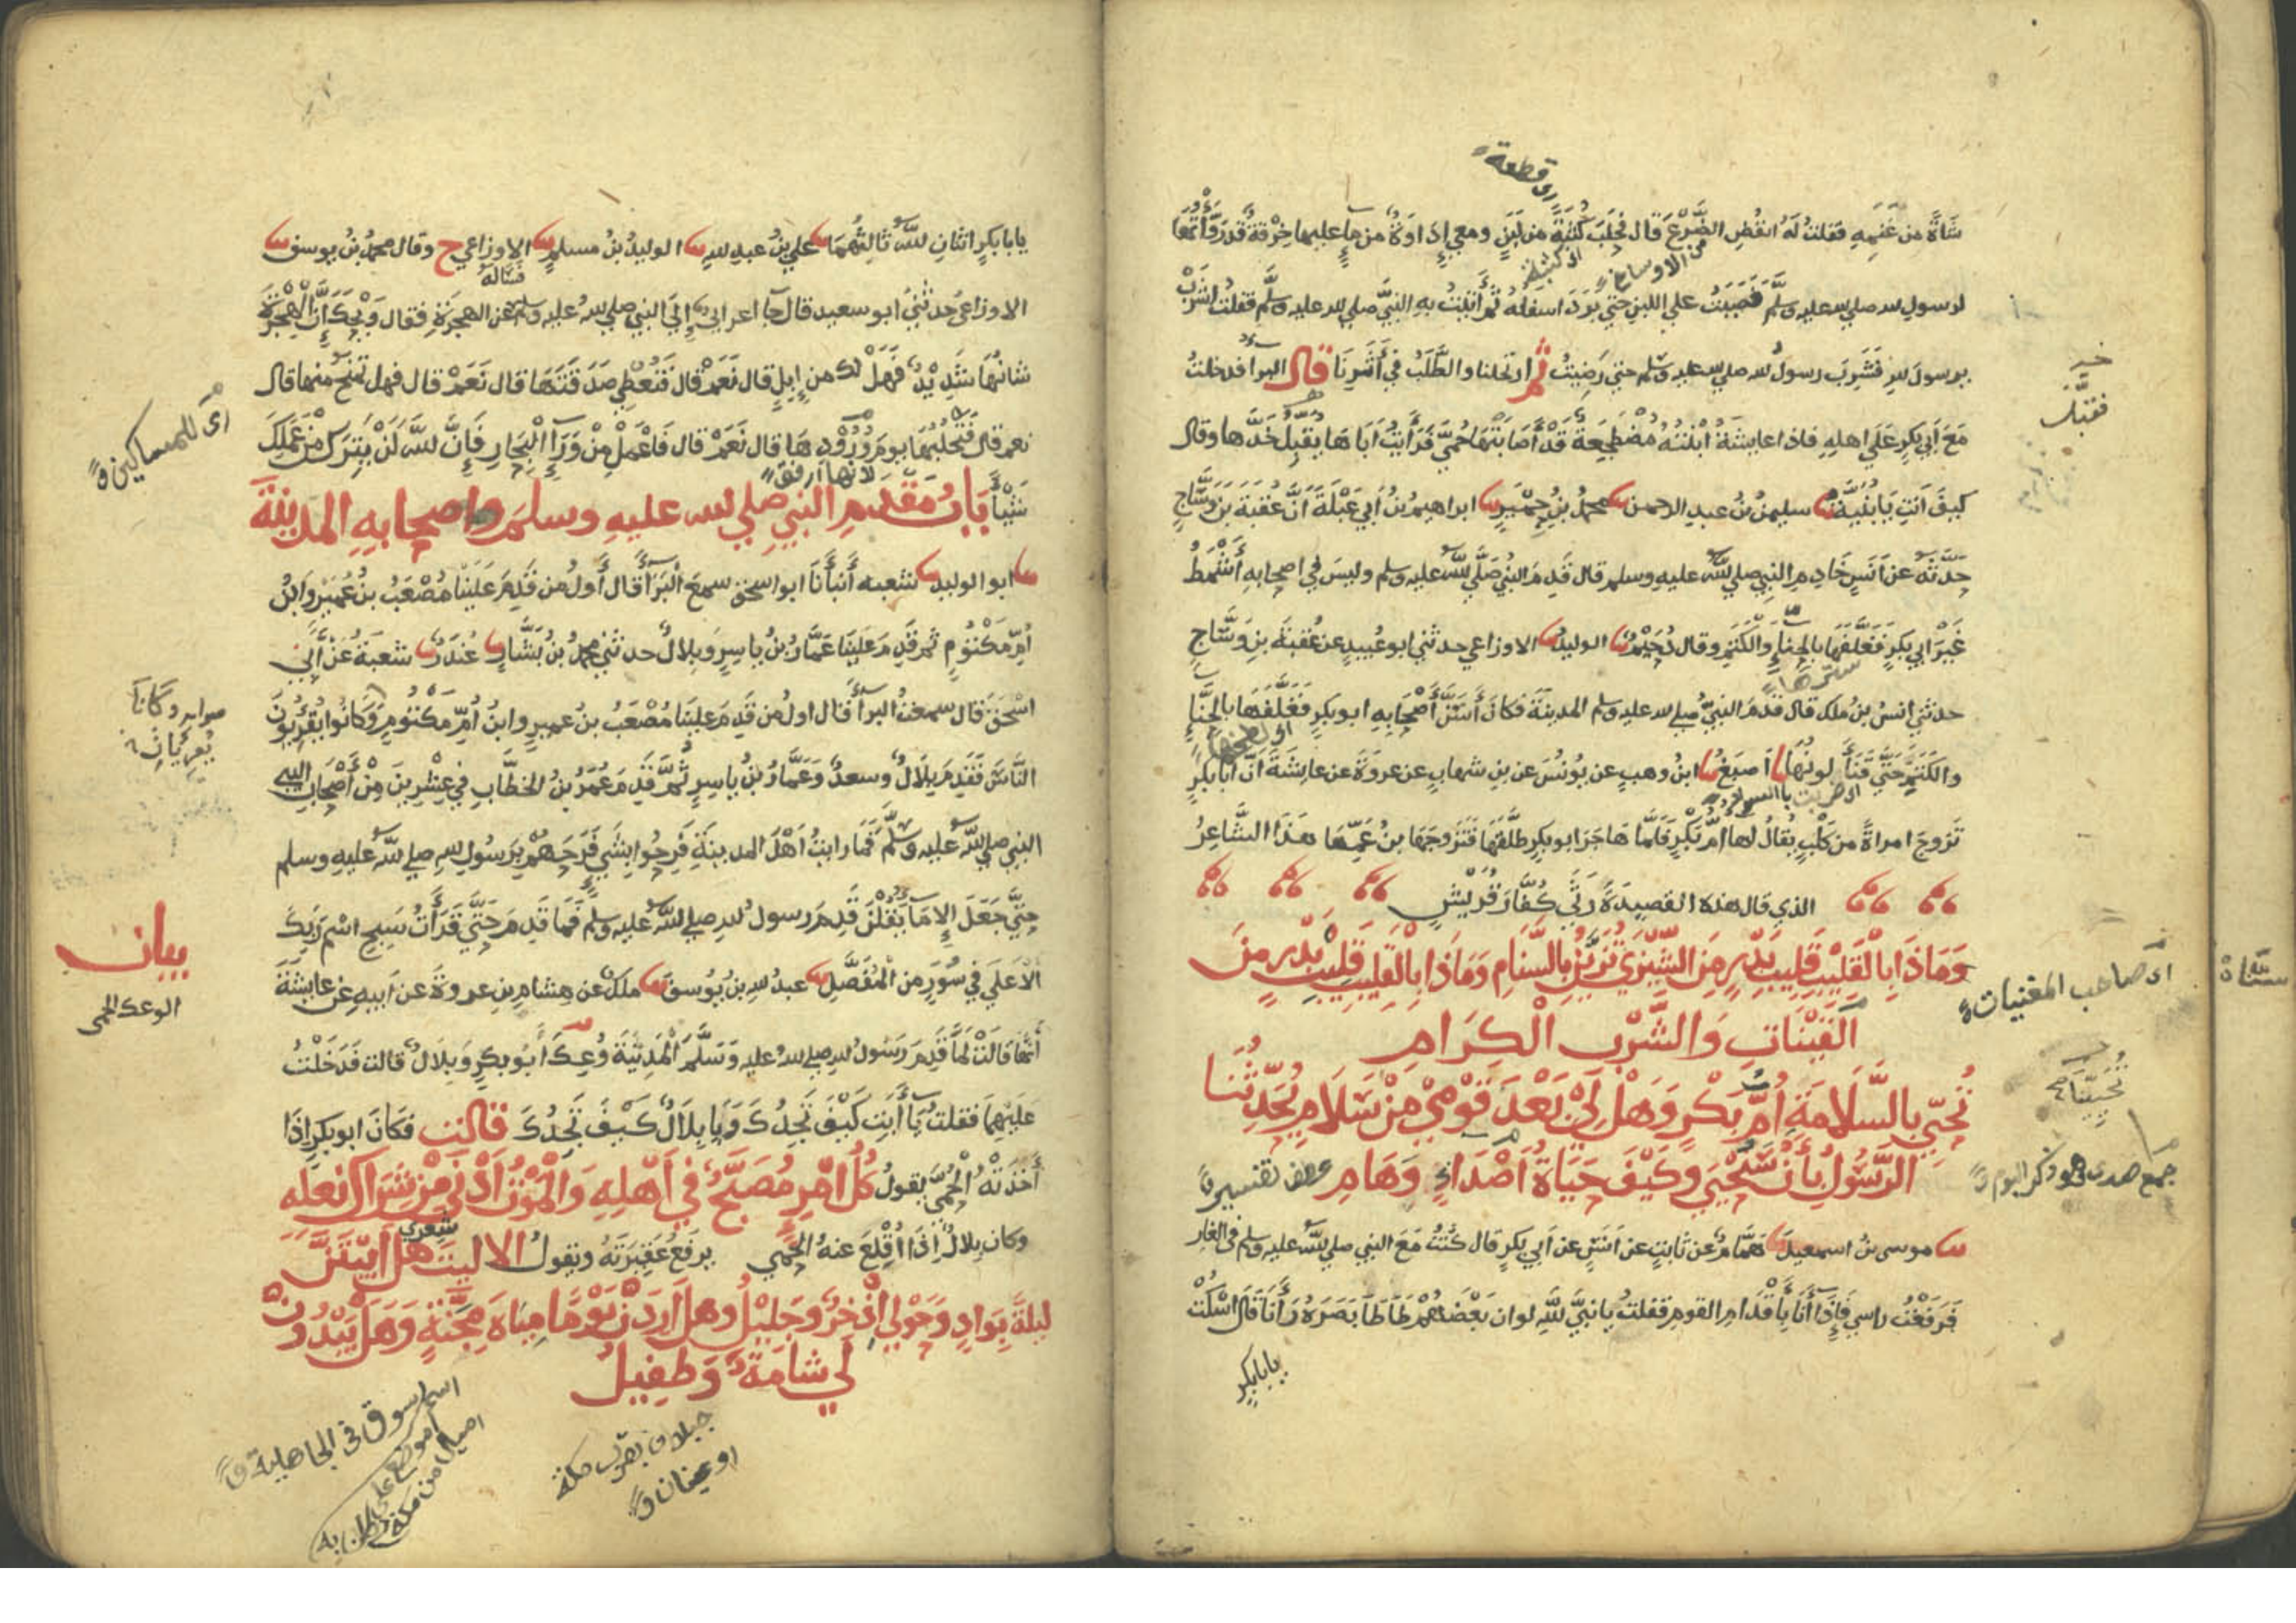 شَاةً من غَنَمِهِ فقلتُ لَهُ انفُضِ الضَّرْعَ قال فحَلَبَ كُثْبَةً من لَبَنٍ ومعي إِدَاوَةٌ من ماءٍ عليها خِرْقةٌ قد رَوَّأْتُهَا
لرسولِ لله صلي لله عليه وسلَّم فَصَبَبْتُ علي اللبن حتي بَرَدَ اسفلُهُ ثم أَتَيْتُ بِهِ النبيَّ صلي لله عليه وسلَّم فقلتُ اشْرَبْ
يرسولَ للهِ فَشَرِبَ رسولُ لله صلي لله عليه وسلم حتي رَضِيتُ ثُمَّ ارتحلنا والطَّلَبُ في أَثَرِنَا قال البراء فدخلتُ
مَعَ أَبي بكرٍ عَلَي اهلِهِ فاذا عايشَةُ ابْنَتُهُ مُضْطَجِعَةٌ قَدْ أَصَابَتْهَا حُمَّي فَرَأَيْتُ أَبَاهَا يُقَبِّلُ خَدَّها وقال
كيفَ أَنتِ يَا بُنَيَّةُ سليمنُ بنُ عبدِ الرحمن محمدُ بنُ حِمْيَرٍ ابراهيمُ بنُ أَبي عَبْلَةَ أَنَّ عُقْبَةَ بنَ وَسَّاجٍ
حدَّثَهُ عن أَنَسٍ خَادِمِ النبِي صلي للهُ عليهِ وسلم قال قَدِمَ النبيُّ صَلَّي للهُ عليه وسلم وليسَ في اصحابِهِ أَشْمَطُ
غَيْرَ ابي بكرٍ فَغَلَّفَهَا بالحِنَّاءِ وَالْكَتَمِ وقال دُحَيْمٌ الوليدُ الاوزاعي حدثني ابو عُبيدٍ عن عُقبَةَ بنِ وَسَّاجٍ
حدثني انسُ بن ملك قال قَدمَ النبيُّ صلي لله عليه وسلم المدينَةَ فكانَ أَسَنَّ أَصْحَابِهِ ابو بكرٍ فَغَلَّفَهَا بالحِنَّاءِ
والكَتَمِ حَتَّي قَنَأَ لونُهَا اَصبَغُ ابنُ وهبٍ عن يُونُسَ عن بنِ شهابٍ عن عروةَ عن عايشَةَ أَنَّ أَبَا بكرٍ
تَزوجَ امراةً من كَلْبٍ يُقالُ لها أُمُّ بَكْرٍ فَلَمَّا هَاجَرَ ابو بكرٍ طلَّقَهَا فَتَزوجَهَا بنُ عَمِّهَا هَذَا الشَّاعِرُ
الذي قال هذه القصيدَةَ رَثَي كُفَّارَ قُرَيْشٍ
وَمَاذَا بِالْقَلِيْبِ قَلِيبِ بَدْرٍ مِنَ الشِّيْزَي تُزَيَّنُ بِالسَّنَامِ وَمَاذَا بِالْقَلِيبِ قَلِيْبِ بَدْرٍ مِنَ
الْقَيْنَاتِ وَالشَّرْبِ الْكِرَامِ
تُحَيّي بِالسَّلَامَةِ أُمُّ بَكْرٍ وَهَلْ لِيْ بَعْدَ قَوْمِيْ مِنْ سَلَامٍ يُحَدِّثُنَا
الرَّسُولُ بِأَنْ سَنُحْيَي وَكَيْفَ حَيَاةُ أَصْدَاءٍ وَهَامِ
موسي بنُ اسمعيلَ هَمَّامٌ عن ثابتٍ عن أَنَسٍ عن أَبي بكرٍ قال كُنْتُ مَعَ النبي صلي للهُ عليه وسلم في الغار
فَرَفَعْتُ راسي فَإِذَا أَنَا بِأَقْدَامِ القومِ فقلتُ يا نبيَّ للهِ لو ان بَعْضَهُمْ طَأطَأَ بَصَرَهُ رَأَنَا قَالَ اسْكُتْ
يابابكرٍ
اى قطعة
خير
فقبَّل
اى صاحب المغنيات
جمع صدى وهو ذكر البوم
عطف تفسير
يابابكرٍ اثنانِ للهُ ثالثُهُمَا علي بنُ عبدِ للهِ الوليدُ بنُ مسلمٍ الاوزاعي ح وقال محمدُ بنُ يوسفَ
الاوزاعيُّ حدثنيُ ابو سعيد قال جا اعرابي إِلَى النبي صلي للهُ عليه وسلم فسأله عن الهجرَةِ فقال وَيْحَكَ إِنَّ الْهِجْرَةَ
شانُهَا شَدِيْدٌ فَهَلْ لك من إِبِلٍ قال نَعَمْ قال فَتُعْطِي صَدَقَتَهَا قال نَعَمْ قال فهل تمنحُ منها قال
نعم قال فَتَحْلُبُهَا يومَ وُرُوْدِهَا قال نَعَمْ قال فَاعْمَلْ مِنْ وَرَاءِ الْبِحَارِ فَإِنَّ للهَ لَنْ يَتِرَكَ مِنْ عَمَلِكَ
شَيْأً بَابُ مَقْدَمِ النبي صلي لله عليهِ وسلم واصحابِهِ المدينَةَ
ابو الوليد شعبه أَنْبَأَنَا ابو اسحق سمعَ الْبَرَاءَ قال أَولُ من قَدِمَ عَلَيْنَا مُصْعَبُ بنُ عُمَيْرٍ وَابْنُ
أُمِّ مَكْتُوْمٍ ثم قَدِمَ عَلَيْنَا عَمَّارُ بنُ يا سِرٍ وَبِلَالٌ حدثني محمدُ بن بَشَّارٍ غُنْدَرٌ شعبَةُ عَنْ أَبِي
اسْحٰقَ قال سمعتُ البراءَ قال اولُ من قَدِمَ علينَا مُصْعَبُ بنُ عميرٍ وابنُ أُمِّ مَكْتُوْمٍ وَكَانُوا يُقْرِئُونَ
النَّاسَ فَقَدِمَ بِلَالٌ وسعدٌ وَعَمَّارُ بنُ ياسِرٍ ثُمَّ قَدِمَ عُمَرُ بنُ الخطَّابِ في عِشْرِينَ مِنْ أَصْحَابِ النبي
النبي صلي للهُ عليه وسلَّم فَمَا رايتُ أَهْلَ المدينَةِ فَرِحُوا بِشَيءٍ فَرَحَهُمْ بِرَسُولِ للهِ صلي للهُ عليهِ وسلم
حتَّي جَعَلَ الإِمَاءُ يَقُلْنَ قَدِمَ رسولُ للهِ صلي للهُ عليه وسلم فَمَا قَدِمَ حَتَّي قَرَأْتُ سَبِّحِ اسْمَ رَبِّكَ
الْأَعْلَي في سُوَرٍ من الْمُفَصَّلِ عبدُ للهِ بن يُوسفَ ملكٌ عن هشامِ بنِ عروةَ عن أَبيهِ عن عايشَةَ
أَنَّهَا قَالَتْ لمَّا قَدِمَ رَسُولُ للهِ صلي للهُ عليه وَسَلَّمَ الْمَدِيْنَةَ وُعِكَ أَبُو بَكْرٍ وَبِلَالٌ قالت فَدَخَلْتُ
عليْهِمَا فقلتُ يَا أَبَتِ كَيْفَ تَجِدُكَ وَيَا بِلَالُ كَيْفَ تَجِدُكَ قالت فكَانَ ابو بكرٍ إِذَا
أَخَذَتْهُ الحُمَّي يقولُ كُلُّ امْرِءٍ مُصَبَّحٌ في أَهْلِهِ وَالْمَوْتُ أَدْنَي مِنْ شِرَاكِ نَعْلِهِ
وكان بلالٌ إِذَا أُقْلِعَ عنهُ الحُمَّي يرفعُ عَقِيرَتَهُ ويقولُ الا ليت شعري هل أَبِيْتَنَّ
ليلةً بِوَادٍ وَحَوْلِي إِذْخِرٌ وَجَلِيْلُ وهل أَرِدَنْ يَوْمًا مِيَاهَ مِجَنَّةٍ وَهَلْ يَبْدُوَنْ
لي شامَةٌ وَطَفِيلُ
اى للمساكين
لانها ارفق
بيان
الوعك الحمى
اسم سوق في الجاهلية
جبلان بقرب مكة
او عينان